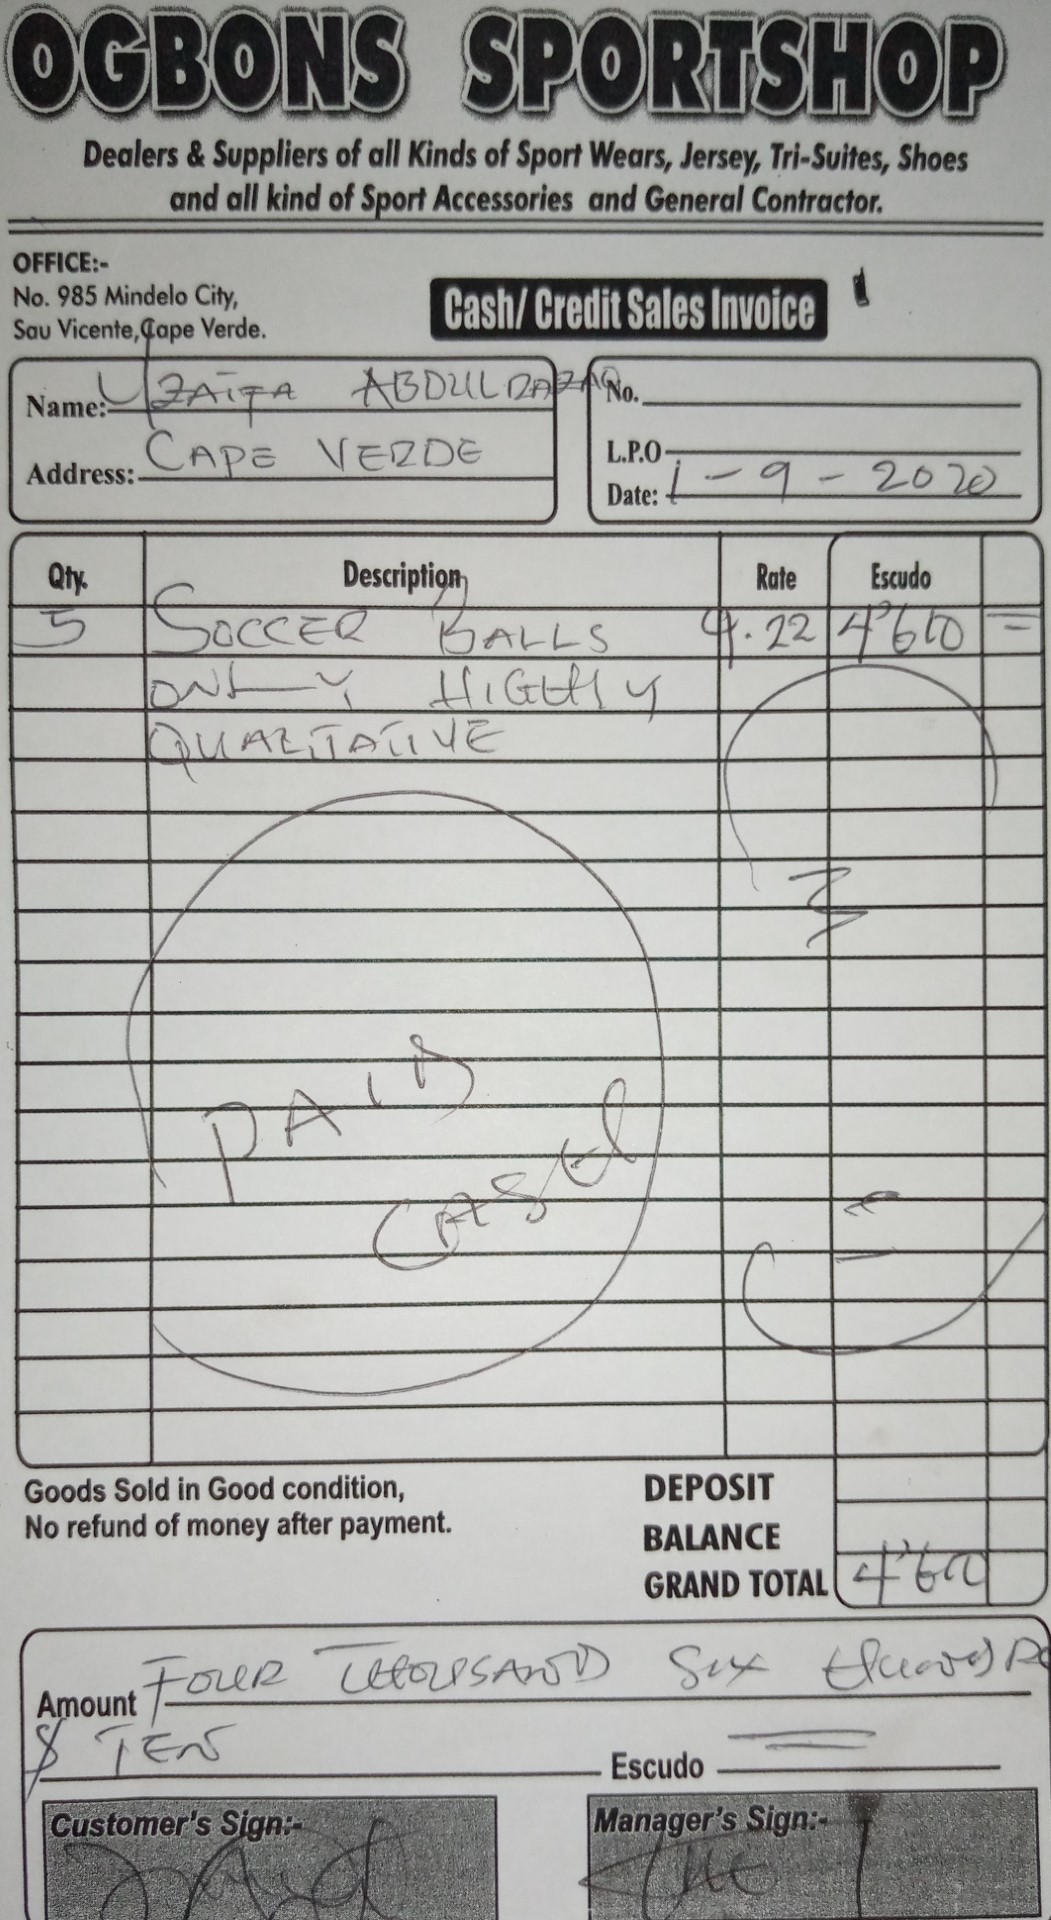 OGBONS SPORTSHOP
Dealers & Suppliers of all Kinds of Sport Wears, Jersey, Tri-Suites, Shoes
and all kind of Sport Accessories and General Contractor.
OFFICE:-
No. 985 Mindelo City,
Sau Vicente, Cape Verde.
Cash/ Credit Sales Invoice
Name: UZAIFA ABDULRAZAQ
Address: CAPE VERDE
No.
L.P.O
Date: 1-9-2020
Qty. Description Rate Escudo
5 SOCCER BALLS 9.22 4'610 =
ONLY HIGHLY
QUALITATIVE
PAID
CASH
Goods Sold in Good condition,
No refund of money after payment.
DEPOSIT
BALANCE
GRAND TOTAL 4'610
Amount FOUR THOUSAND Six Hundred
$ TEN Escudo
Customer's Sign:-
Manager's Sign:-